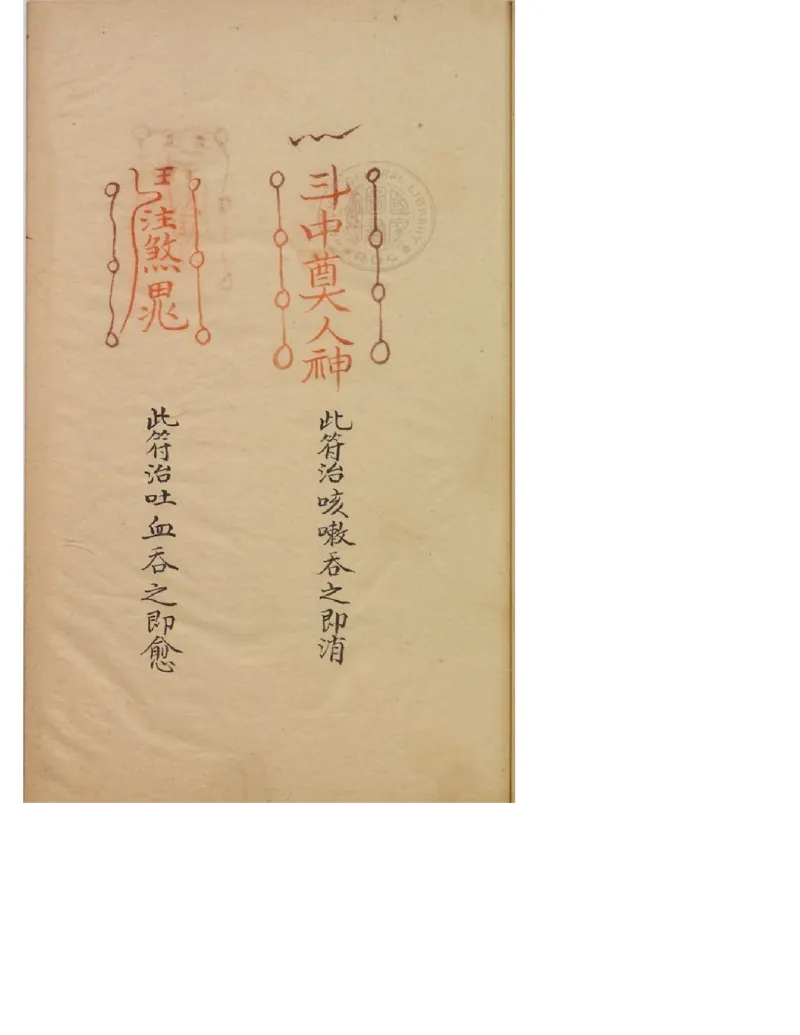 斗中奠人神
此符治咳嗽吞之即消
注煞
此符治吐血吞之即愈